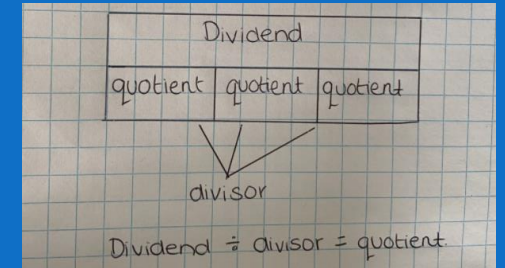 Dividend
quotient quotient quotient
divisor
Dividend ÷ divisor = quotient.